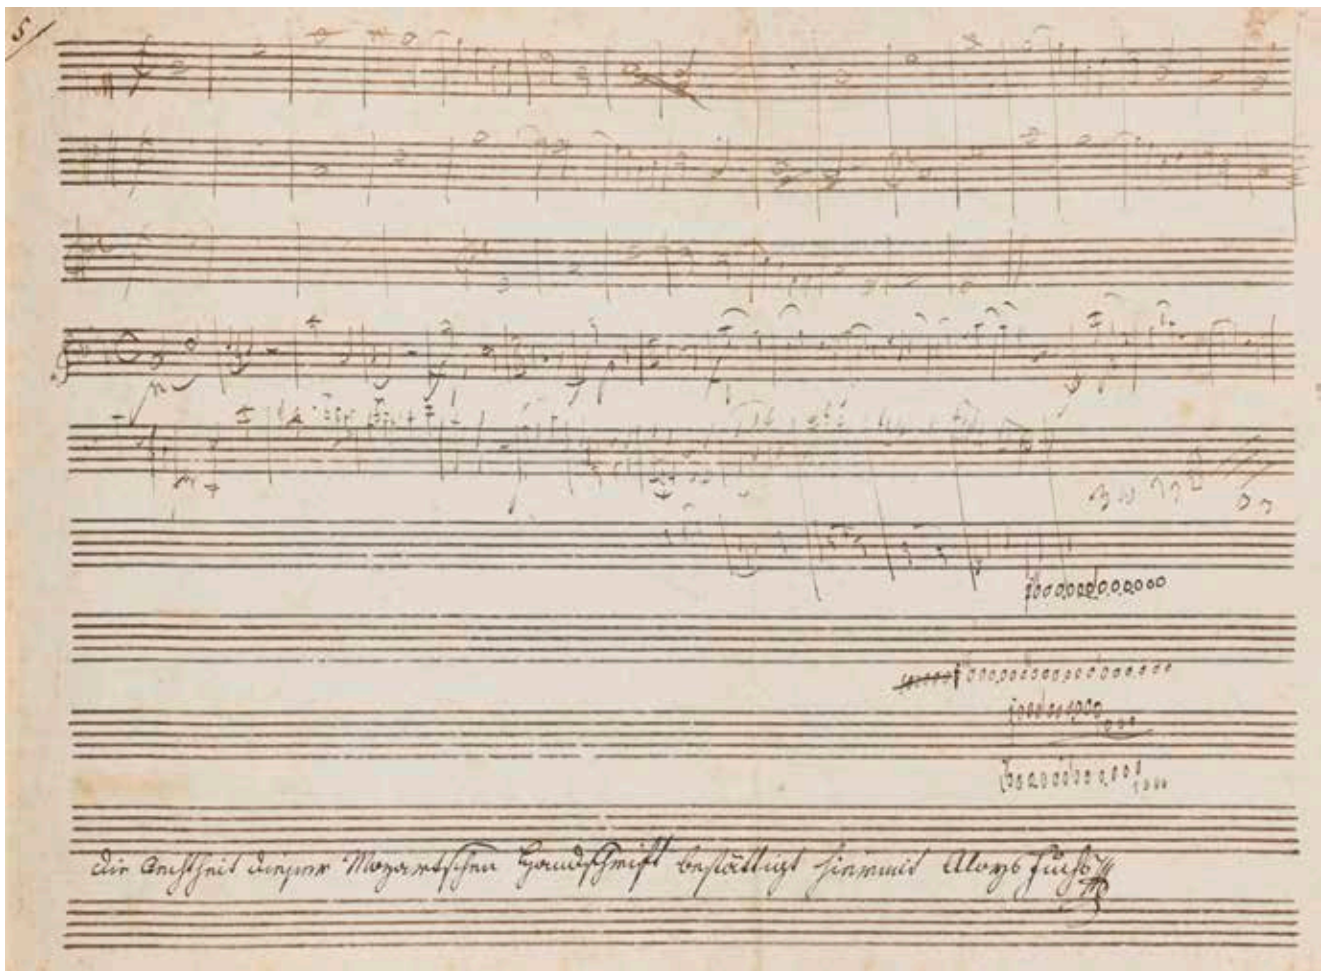 5
Die Aechtheit dieser Mozartschen Handschrift bestättigt hiermit Aloys Fuchs